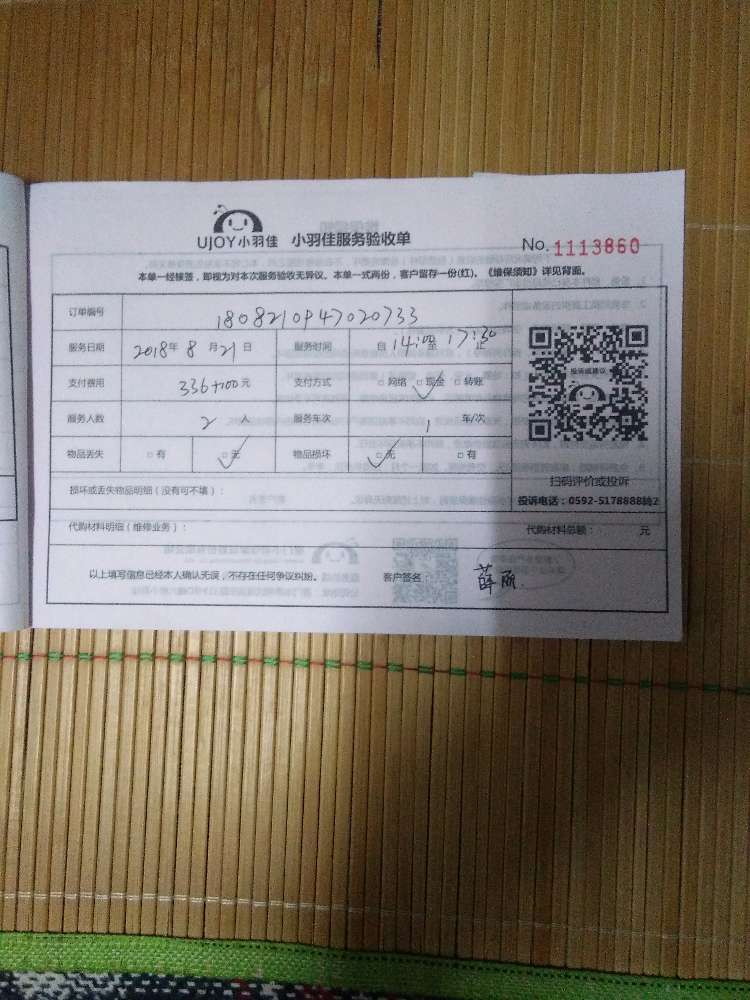 UJOY小羽佳 小羽佳服务验收单
No. 1113860
本单一经接签,即视为对本次服务验收无异议。本单一式两份,客户留存一份(红)。《维保须知》详见背面。
订单编号 1808210947020733
服务日期 2018年 8月21日 服务时间 自14:00至17:30止
支付费用 336+100元 支付方式 □网络 □现金 □转账
投诉或建议
服务人数 2 人 服务车次 1 车/次
物品丢失 □有 □无 物品损坏 □无 □有
扫码评价或投诉
损坏或丢失物品明细(没有可不填):
投诉电话:0592-5178888转2
代购材料明细(维修业务): 代购材料总额: 元
以上填写信息已经本人确认无误,不存在任何争议纠纷。 客户签名 薛丽